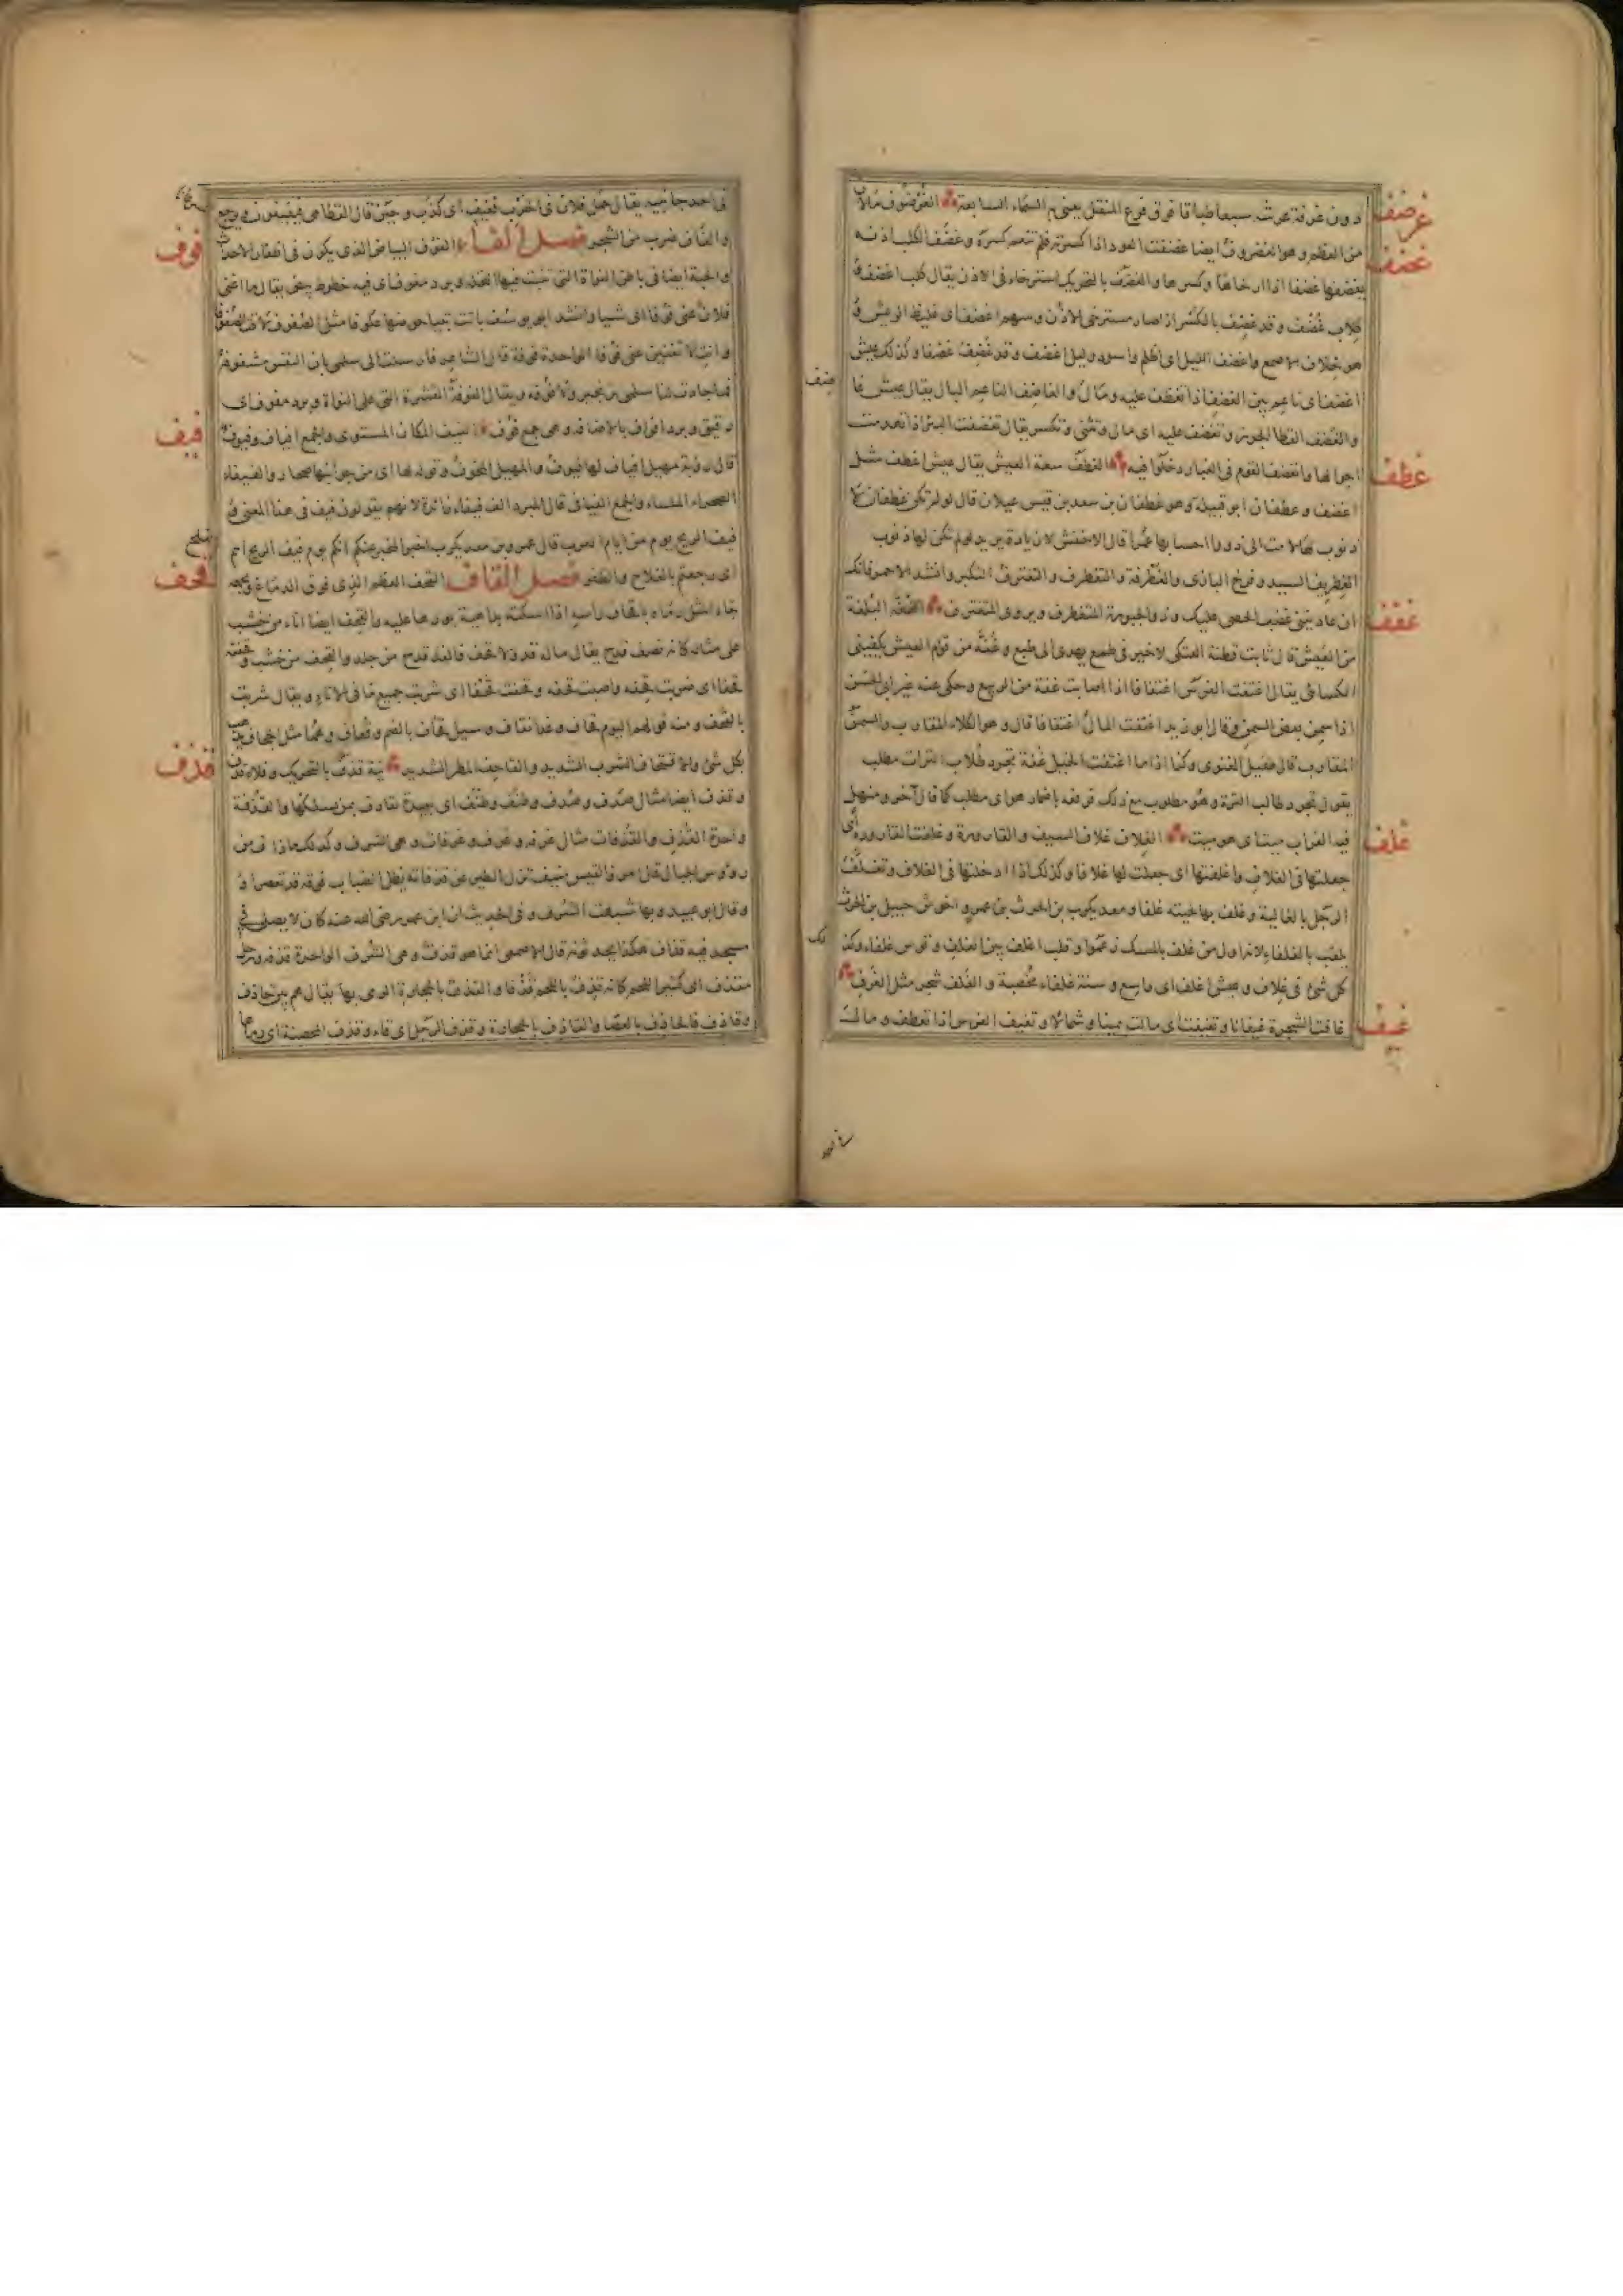 غرضف
دون غرفة عرشه سبعا طباقا فوق فرع المنقل يعنى به السماء السابعة الغرضوف مالان
غضف
من العظم وهو الغضروف ايضا غضفت العود اذا كسرته فلم تنعم كسره وغضف الكلب اذنه
يغضفها غضفا اذا ارخاها وكسرها والغضف بالتحريك استرخاء فى الاذن يقال كلب اغضف و
كلاب غضف وقد غضف بالكسر اذا صار مسترخى الاذن وسهم اغضف اى غليظ الريش و
هو خلاف الاصمع واغضف الليل اى اظلم واسود وليل اغضف وقد غضف غضفا وكذلك عيش
اغضف اى ناعم بين الغضف اذا تغضف عليه ومال والغاضف الناعم البال يقال عيش غا
ضف
والغضف القطا الجون وتغضف عليه اى مال وتثنى وتكسر يقال تغضفت البئر اذا تهدمت
غطف
اجوالها وانغضف القوم فى الغبار دخلوا فيه الغطف سعة العيش يقال عيش اغطف مثل
اغضف وغطفان ابو قبيلة وهو غطفان بن سعد بن قيس عيلان قال لو لم تكن غطفان لا
ذنوب لها لامت الى ذوو احسابها عمرا قال الاخفش لا زيادة يريد لو لم تكن لها ذنوب
الغطريف السيد وفرخ البازى والغطرفة والتغطرف والتغترف التكبر وانشد الاحمر فانك
غفف
ان عاديتنى غضب الحصى عليك وذو الجبورة المتغطرف ويروى المتغترف الغفة البلغة
من العيش قال ثابت قطنة العتكى لا خير فى طمع يهدى الى طبع وغفة من قوام العيش يكفينى
الكسائى يقال اغتفت الفرس اغتفافا اذا اصابت غفة من الربيع وحكى عنه غير ابى الحسن
اذا سمن بعض السمن وقال ابو زيد اغتفت المال اغتفافا قال وهو الكلاء المقارب والسمن
المقارب قال طفيل الغنوى وكنا اذا ما اغتفت الخيل غفة تجرد طلاب الترات مطلب
يقول تجرد طالب الترة وهو مطلوب مع ذلك فرفعه باضمار هو اى مطلب كما قال آخر ومنهل
غلف
فيه الغراب ميت اى هو ميت الغلاف غلاف السيف والقارورة وغلفت القارورة اى
جعلتها فى الغلاف واغلفتها اى جعلت لها غلافا وكذلك اذا ادخلتها فى الغلاف وتغلف
الرجل بالغالية وغلف بها لحيته غلفا ومعديكرب بن الحرث بن عمرو اخو شرحبيل بن الحرث
يلقب بالغلفاء لانه اول من غلف بالمسك زعموا وقلب اغلف بين الغلف وقوس غلفاء وكذ
لك
كل شئ فى غلاف وعيش اغلف اى واسع وسنة غلفاء مخصبة والغلف شجر مثل الغرف
غيف
غافت الشجرة غيفانا وتغيفت اى مالت يمينا وشمالا وتغيف الفرس اذا تعطف ومالت
فى احد جانبيه يقال حمل فلان فى الحرب فغيف اى كذب وجبن قال القطامى فيغيفون ويرجع
فوف
والغاف ضرب من الشجر فصل الفاء الفوف البياض الذى يكون فى اظفار الاحداث
والحبة ايضا فى باطن النواة التى تنبت فيها النخلة وبرد مفوف اى فيه خطوط بيض يقال ما اغنى
فلان عنى فوفا اى شيئا وانشد ابو يوسف باتت تبيا حوضها عكوفا مثل الصفوف لاقت الصفوفا
وانت لا تغنين عنى فوفا الواحدة فوفة قال الشاعر فارسلت الى سلمى بان النفس مشغوفه
فما جادت لنا سلمى بزنجير ولا فوفه ويقال الفوفة القشرة التى على النواة وبرد مفوف اى
فيف
رقيق وبرد افواف بالاضافة وهى جمع فوف الفيف المكان المستوى والجمع افياف وفيوف
قال رؤبة مهيل افياف لها فيوف والمهيل المخوف وقوله لها اى من جوانبها صحار والفيفاء
الصحراء الملساء والجمع الفيافى قال المبرد الف فيفاء زائدة لانهم يقولون فيف فى هذا المعنى و
فيف الريح يوم من ايام العرب قال عمرو بن معديكرب اخبر المخبر عنكم انكم يوم فيف الريح ابتم
بالفلج
قحف
اى رجعتم بالفلاح والظفر فصل القاف القحف العظم الذى فوق الدماغ
جاء المثل رماه باقحاف راسه اذا اسكته بداهية يوردها عليه والقحف ايضا اناء من خشب
على مثاله كانه نصف قدح يقال ماله قد ولا قحف فالقد قدح من جلد والقحف من خشب وقحفته
قحفا اى ضربت قحفه واصبت قحفه وقحفت قحفا اى شربت جميع ما فى الاناء ويقال شربت
بالقحف ومنه قولهم اليوم قحاف وغدا نقاف وسيل قحاف بالضم وقعاف وجحاف مثل الجحاف يذهب
قذف
بكل شئ والاقتحاف الشرب الشديد والقاحف المطر الشديد نية قذف بالتحريك وفلاة قذف
وقذف ايضا مثال صدف وصدف وطنف وطنف اى بعيدة تقاذف بمن يسلكها والقذفة
واحدة القذف والقذفات مثال غرفة وغرف وغرفات وهى الشرف وكذلك ما اشرف من
رؤوس الجبال قال امرؤ القيس منيف تزل الطير عن قذفاته يظل الضباب فوقه قد تعصرا و
قال ابو عبيد وبها شبهت الشرف وفى الحديث ان ابن عمر رضى الله عنه كان لا يصلى فى
مسجد فيه قذاف هكذا يحدثونه قال الاصمعى انما هو قذف وهى الشرف الواحدة قذفة ورجل
مقذف اى كثير اللحم كانه قذف باللحم قذفا والقذف بالحجارة الرمى بها يقال هم بين حاذف
وقاذف فالحاذف بالعصا والقاذف بالحجارة وقذف الرجل اى قاء وقذف المحصنة اى رماها